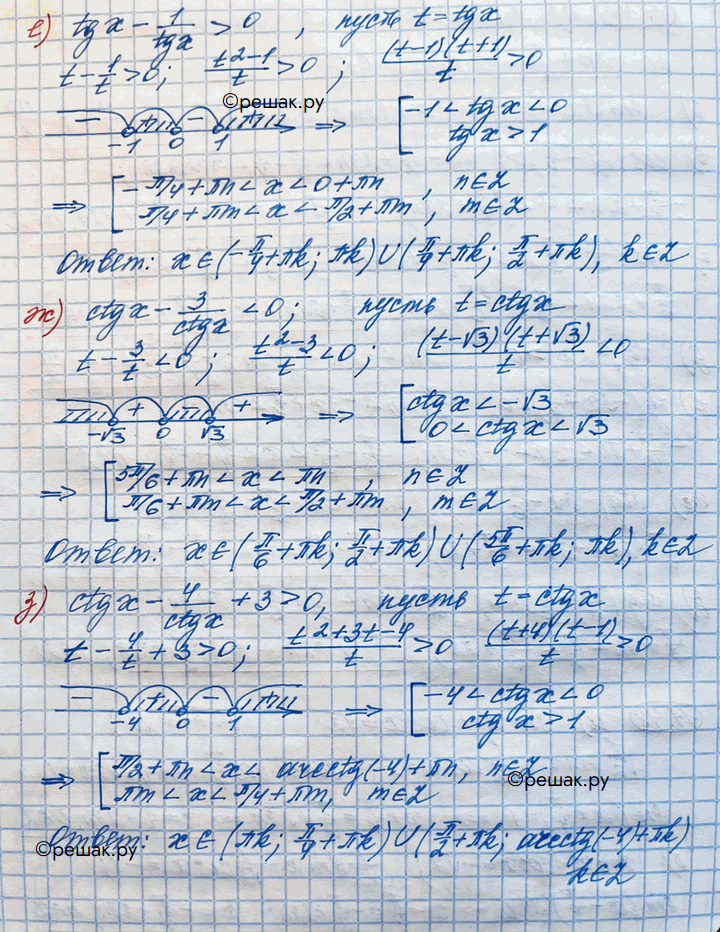 е) tgx - 1/tgx > 0 , пусть t = tgx
t - 1/t > 0; t²-1/t > 0 ; (t-1)(t+1)/t > 0
©решак.ру
- + - + ⇒ [ -1 < tgx < 0
-1 0 1 tgx > 1
⇒ [ -π/4 + πn < x < 0 + πn , n∈Z
π/4 + πm < x < π/2 + πm , m∈Z
Ответ: x∈(-π/4 + πk; πk) ∪ (π/4 + πk; π/2 + πk), k∈Z
ж) ctgx - 3/ctgx < 0; пусть t = ctgx
t - 3/t < 0 ; t²-3/t < 0 ; (t-√3)(t+√3)/t < 0
- + - + ⇒ [ ctgx < -√3
-√3 0 √3 0 < ctgx < √3
⇒ [ 5π/6 + πn < x < πn , n∈Z
π/6 + πm < x < π/2 + πm , m∈Z
Ответ: x∈(π/6 + πk; π/2 + πk) ∪ (5π/6 + πk; πk), k∈Z
з) ctgx - 4/ctgx + 3 > 0, пусть t = ctgx
t - 4/t + 3 > 0; t²+3t-4/t > 0 (t+4)(t-1)/t > 0
- + - + ⇒ [ -4 < ctgx < 0
-4 0 1 ctgx > 1
⇒ [ π/2 + πn < x < arcctg(-4) + πn, n∈Z
πm < x < π/4 + πm, m∈Z
©решак.ру
Ответ: x∈(πk; π/4 + πk) ∪ (π/2 + πk; arcctg(-4) + πk)
©решак.ру
k∈Z